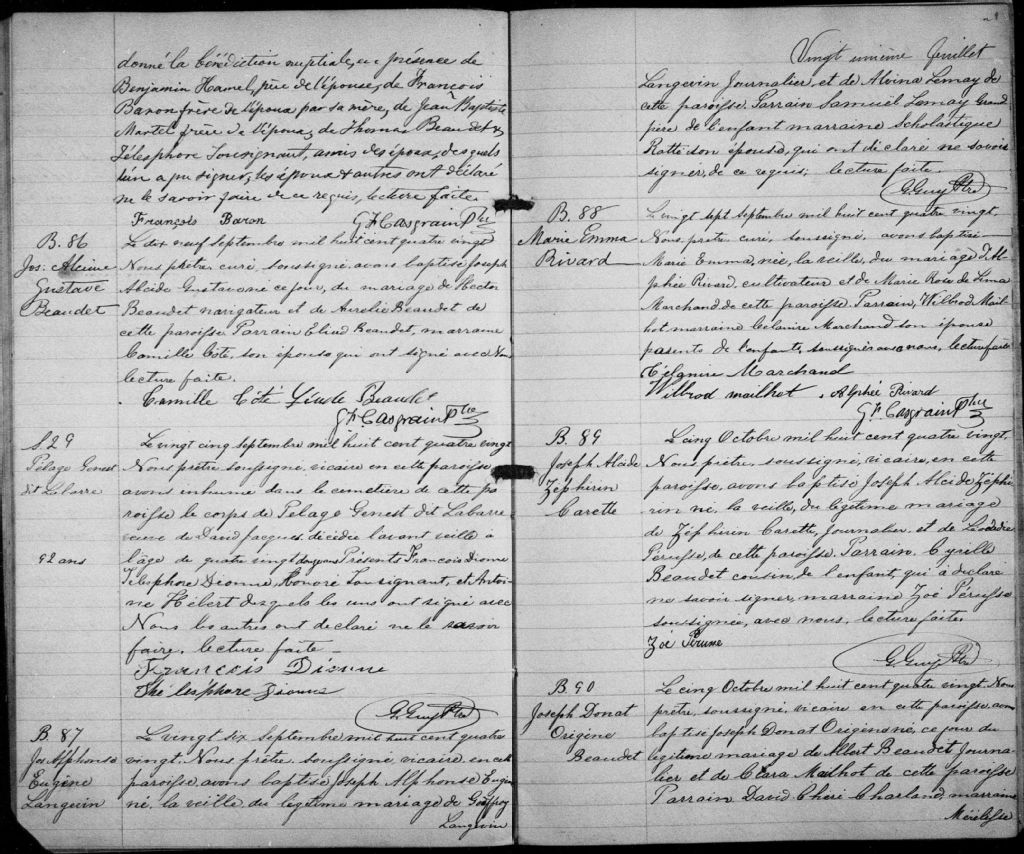 donné la bénédiction nuptiale, en présence de
Benjamin Hamel, père de l'épouse, de François
Baron frère de l'époux par sa mère, de Jean Baptiste
Martel frère de l'époux, de Thomas Beaudet &
Télesphore Tousignant, amis des époux, desquels
l'un a pu signer, les époux & autres ont déclaré
ne le savoir faire de ce requis, lecture faite.
François Baron G. F. Casgrain Ptre
B. 86
Jos. Alcime
Gustave
Beaudet
Le dix neuf Septembre mil huit cent quatre vingt
Nous prêtre curé, soussigné avons baptisé Joseph
Alcide Gustave né ce jour, du mariage de Hector
Beaudet navigateur et de Aurelie Beaudet de
cette paroisse Parrain Elius Beaudet, marraine
Camille Côté, son épouse qui ont signé avec Nous
lecture faite.
Camille Côté Beaudet
G. F. Casgrain Ptre
S 29
Pélage Genest
dit Labarre
92 ans
Le vingt cinq septembre mil huit cent quatre vingt
Nous prêtre soussigné, vicaire en cette paroisse
avons inhumé dans le cimetière de cette pa
roisse le corps de Pelage Genest dit Labarre
veuve de David Jacques, décédée l'avant veille à
l'âge de quatre vingt douze ans Présents François Dionne
Télesphore Dionne, Honoré Tousignant, et Antoi
ne Hébert desquels les uns ont signé avec
Nous les autres ont declaré ne le savoir
faire, lecture faite
François Dionne
Thélesphore Dionne
G. Guy Ptre
B 87
Jos Alphonse
Eugène
Langevin
Le vingt six septembre mil huit cent quatre
vingt. Nous prêtre, soussigné, vicaire en cette
paroisse avons baptisé Joseph Alphonse Eugène
né, la veille du légitime mariage de Godfroy
Langevin
Vingt unième feuillet
Langevin Journalier, et de Alvina Lemay de
cette paroisse, Parrain Samuel Lemay Grand
père de l'enfant marraine Scholastique
Rotté son épouse, qui ont déclaré ne savoir
signer, de ce requis, lecture faite.
G. Guy Ptre
B. 88
Marie Emma
Rivard
Le vingt sept Septembre mil huit cent quatre vingt,
Nous, prêtre curé, soussigné, avons baptisé
Marie Emma, née, la veille, du mariage d'Al
phée Rivard, cultivateur et de Marie Rose de Lima
Marchand de cette paroisse. Parrain, Wilbrod Mail
hot marraine Célanire Marchand son épouse
parents de l'enfant, soussignés avec nous, lecture faite
Célanire Marchand
Wilbrod mailhot Alphée Rivard
G. F. Casgrain Ptre
B. 89
Joseph Alcide
Zéphirin
Carette
Le cinq Octobre mil huit cent quatre vingt,
Nous prêtre, soussigné, vicaire, en cette
paroisse, avons baptisé Joseph Alcide Zéphi
rin né, la veille, du légitime mariage
de Zéphirin Carette, Journalier et de Léocadie
Pérusse, de cette paroisse. Parrain. Cyrille
Beaudet cousin de l'enfant, qui a déclaré
ne savoir signer, marraine Zoé Pérusse
soussignée, avec nous, lecture faite.
Zoé Péruse
G. Guy Ptre
B. 90
Joseph Donat
Origène
Beaudet
Le cinq Octobre mil huit cent quatre vingt. Nous
prêtre, soussigné, vicaire en cette paroisse, avons
baptisé Joseph Donat Origène né, ce jour du
légitime mariage de Albert Beaudet Journa
lier et de Clara Mailhot de cette paroisse
Parrain David Chéri Charland, marraine